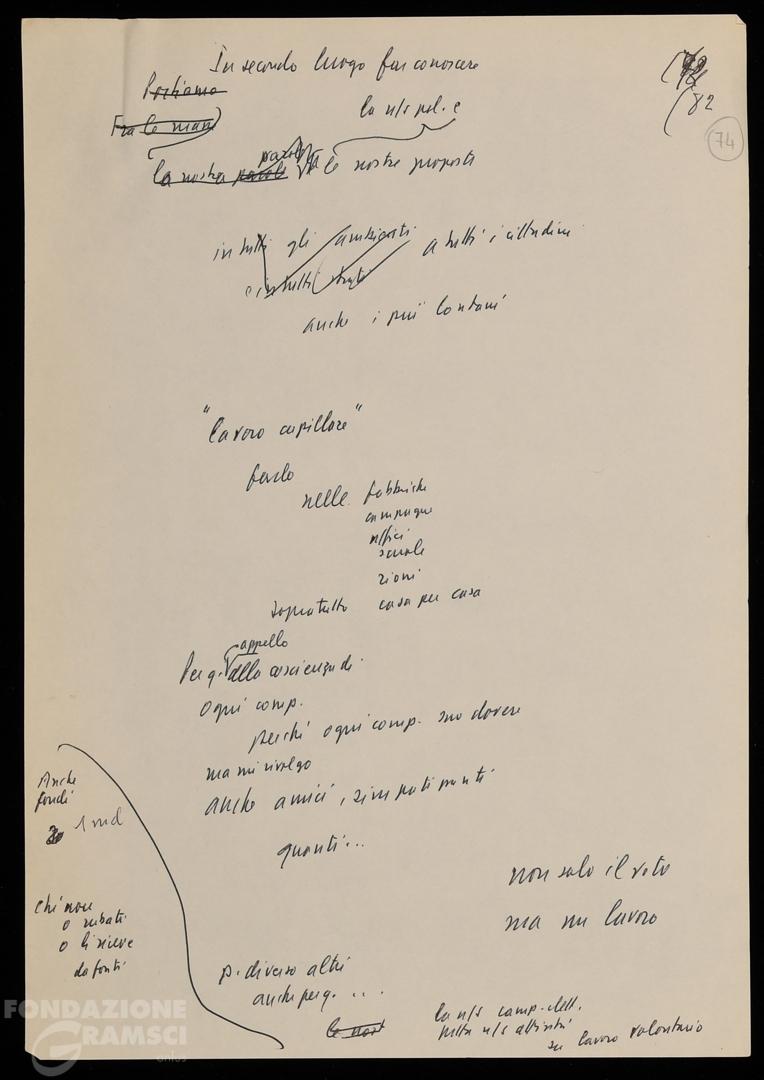 In secondo luogo far conoscere
Portiamo
Fra le mani
82
74
la n/s pol. e
parole
la nostra parole e le nostre proposte
in tutti gli ambienti a tutti i cittadini
e in tutti strati
anche i più lontani
"lavoro capillare"
farlo
nelle fabbriche
campagne
uffici
scuole
rioni
sopratutto casa per casa
appello
Per q. alla coscienza di
ogni comp.
perché ogni comp. suo dovere
ma mi rivolgo
anche amici, simpatizzanti
quanti...
Anche
fondi
1 md
non solo il voto
ma un lavoro
Chi non
o rubati
o li riceve
da fonti
p. diverso altri
anche per q. ...
le nost
la n/s camp. elett.
tutta n/s attività
su lavoro volontario
FONDAZIONE
GRAMSCI
onlus